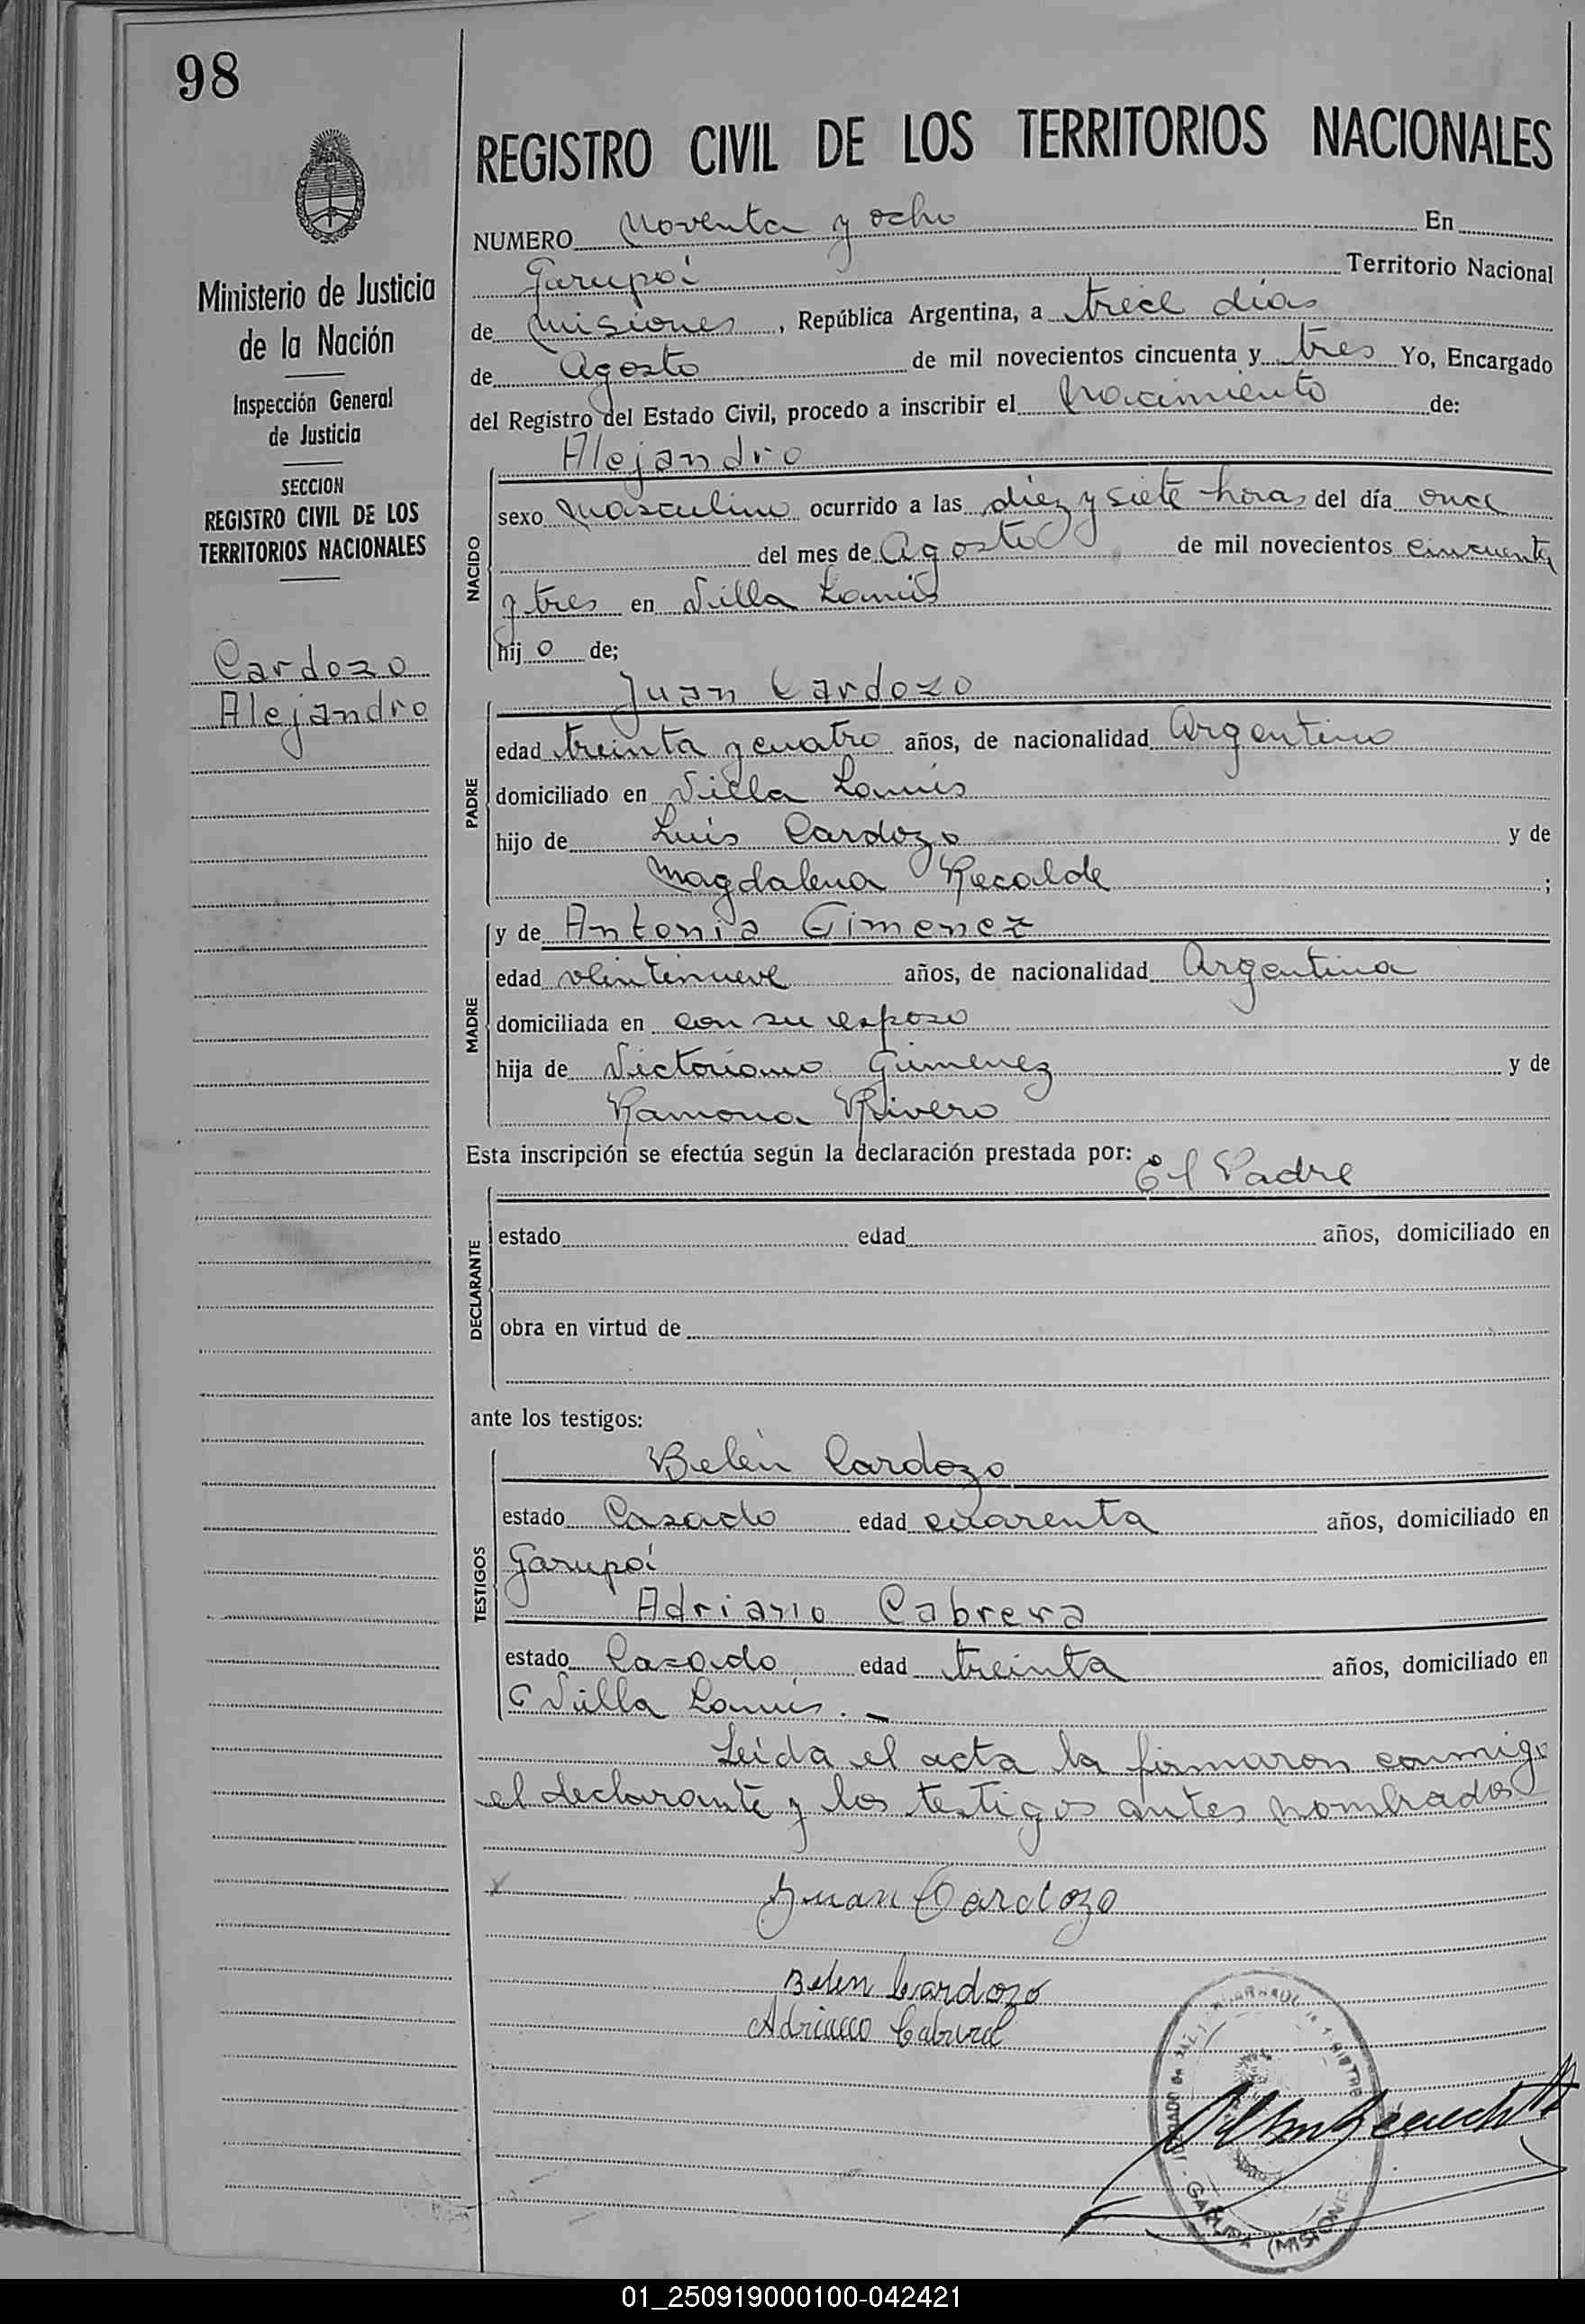 98
REGISTRO CIVIL DE LOS TERRITORIOS NACIONALES
Ministerio de Justicia
de la Nación
Inspección General
de Justicia
SECCION
REGISTRO CIVIL DE LOS
TERRITORIOS NACIONALES
Cardozo
Alejandro
NUMERO Noventa y ocho En
Garupá Territorio Nacional
de Misiones, República Argentina, a trece días
de Agosto de mil novecientos cincuenta y tres Yo, Encargado
del Registro del Estado Civil, procedo a inscribir el Nacimiento de:
NACIDO
Alejandro
sexo Masculino ocurrido a las diez y siete horas del día once
del mes de Agosto de mil novecientos cincuenta
y tres en Villa Lanús
hijo de;
PADRE
Juan Cardozo
edad treinta y cuatro años, de nacionalidad Argentino
domiciliado en Villa Lanús
hijo de Luis Cardozo y de
Magdalena Recalde ;
MADRE
y de Antonia Gimenez
edad veintinueve años, de nacionalidad Argentina
domiciliada en con su esposo
hija de Victoriano Gimenez y de
Ramona Rivero
Esta inscripción se efectúa según la declaración prestada por:
El Padre
DECLARANTE
estado edad años, domiciliado en
obra en virtud de
ante los testigos:
TESTIGOS
Belén Cardozo
estado Casado edad cuarenta años, domiciliado en
Garupá
Adriano Cabrera
estado Casado edad treinta años, domiciliado en
Villa Lanús.-
Leída el acta la firmaron conmigo
el declarante y los testigos antes nombrados
Juan Cardozo
Belen Cardozo
Adriano
GARUPA (MISIONES
01_250919000100-042421